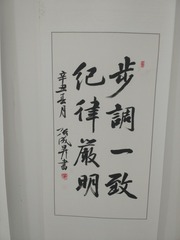 步調一致
纪律嚴明
辛丑春月